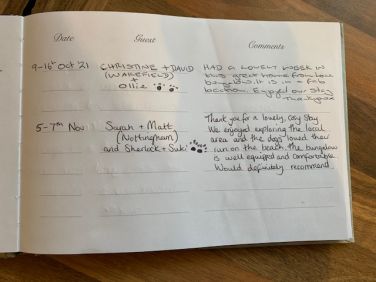 Date Guest Comments
9-16th Oct '21 CHRISTINE + DAVID HAD A LOVELY WEEK IN
(WAKEFIELD) this great home from home
+ bungalow. it is in a fab
Ollie location. Enjoyed our stay
Thankyou
5-7th Nov Sarah + Matt Thank you for a lovely, cosy stay.
(Nottingham) We enjoyed exploring the local
and Sherlock + Suki area and the dogs loved their
run on the beach. The bungalow
is well equipped and comfortable.
Would definitely recommend.